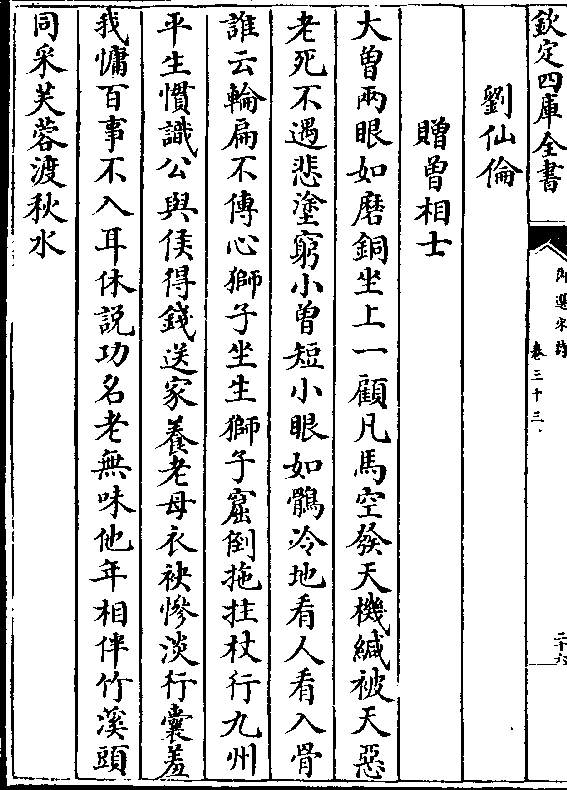 欽定四庫全書
御選宋詩
卷三十三
二十六
劉仙倫
贈曾相士
大曾兩眼如磨銅坐上一顧凡馬空發天機緘被天惡
老死不遇悲塗窮小曾短小眼如鶻冷地看人看入骨
誰云輪扁不傳心獅子坐生獅子窟倒拖拄杖行九州
平生慣識公與侯得錢送家養老母衣袂慘淡行囊羞
我慵百事不入耳休説功名老無味他年相伴竹溪頭
同采芙蓉渡秋水